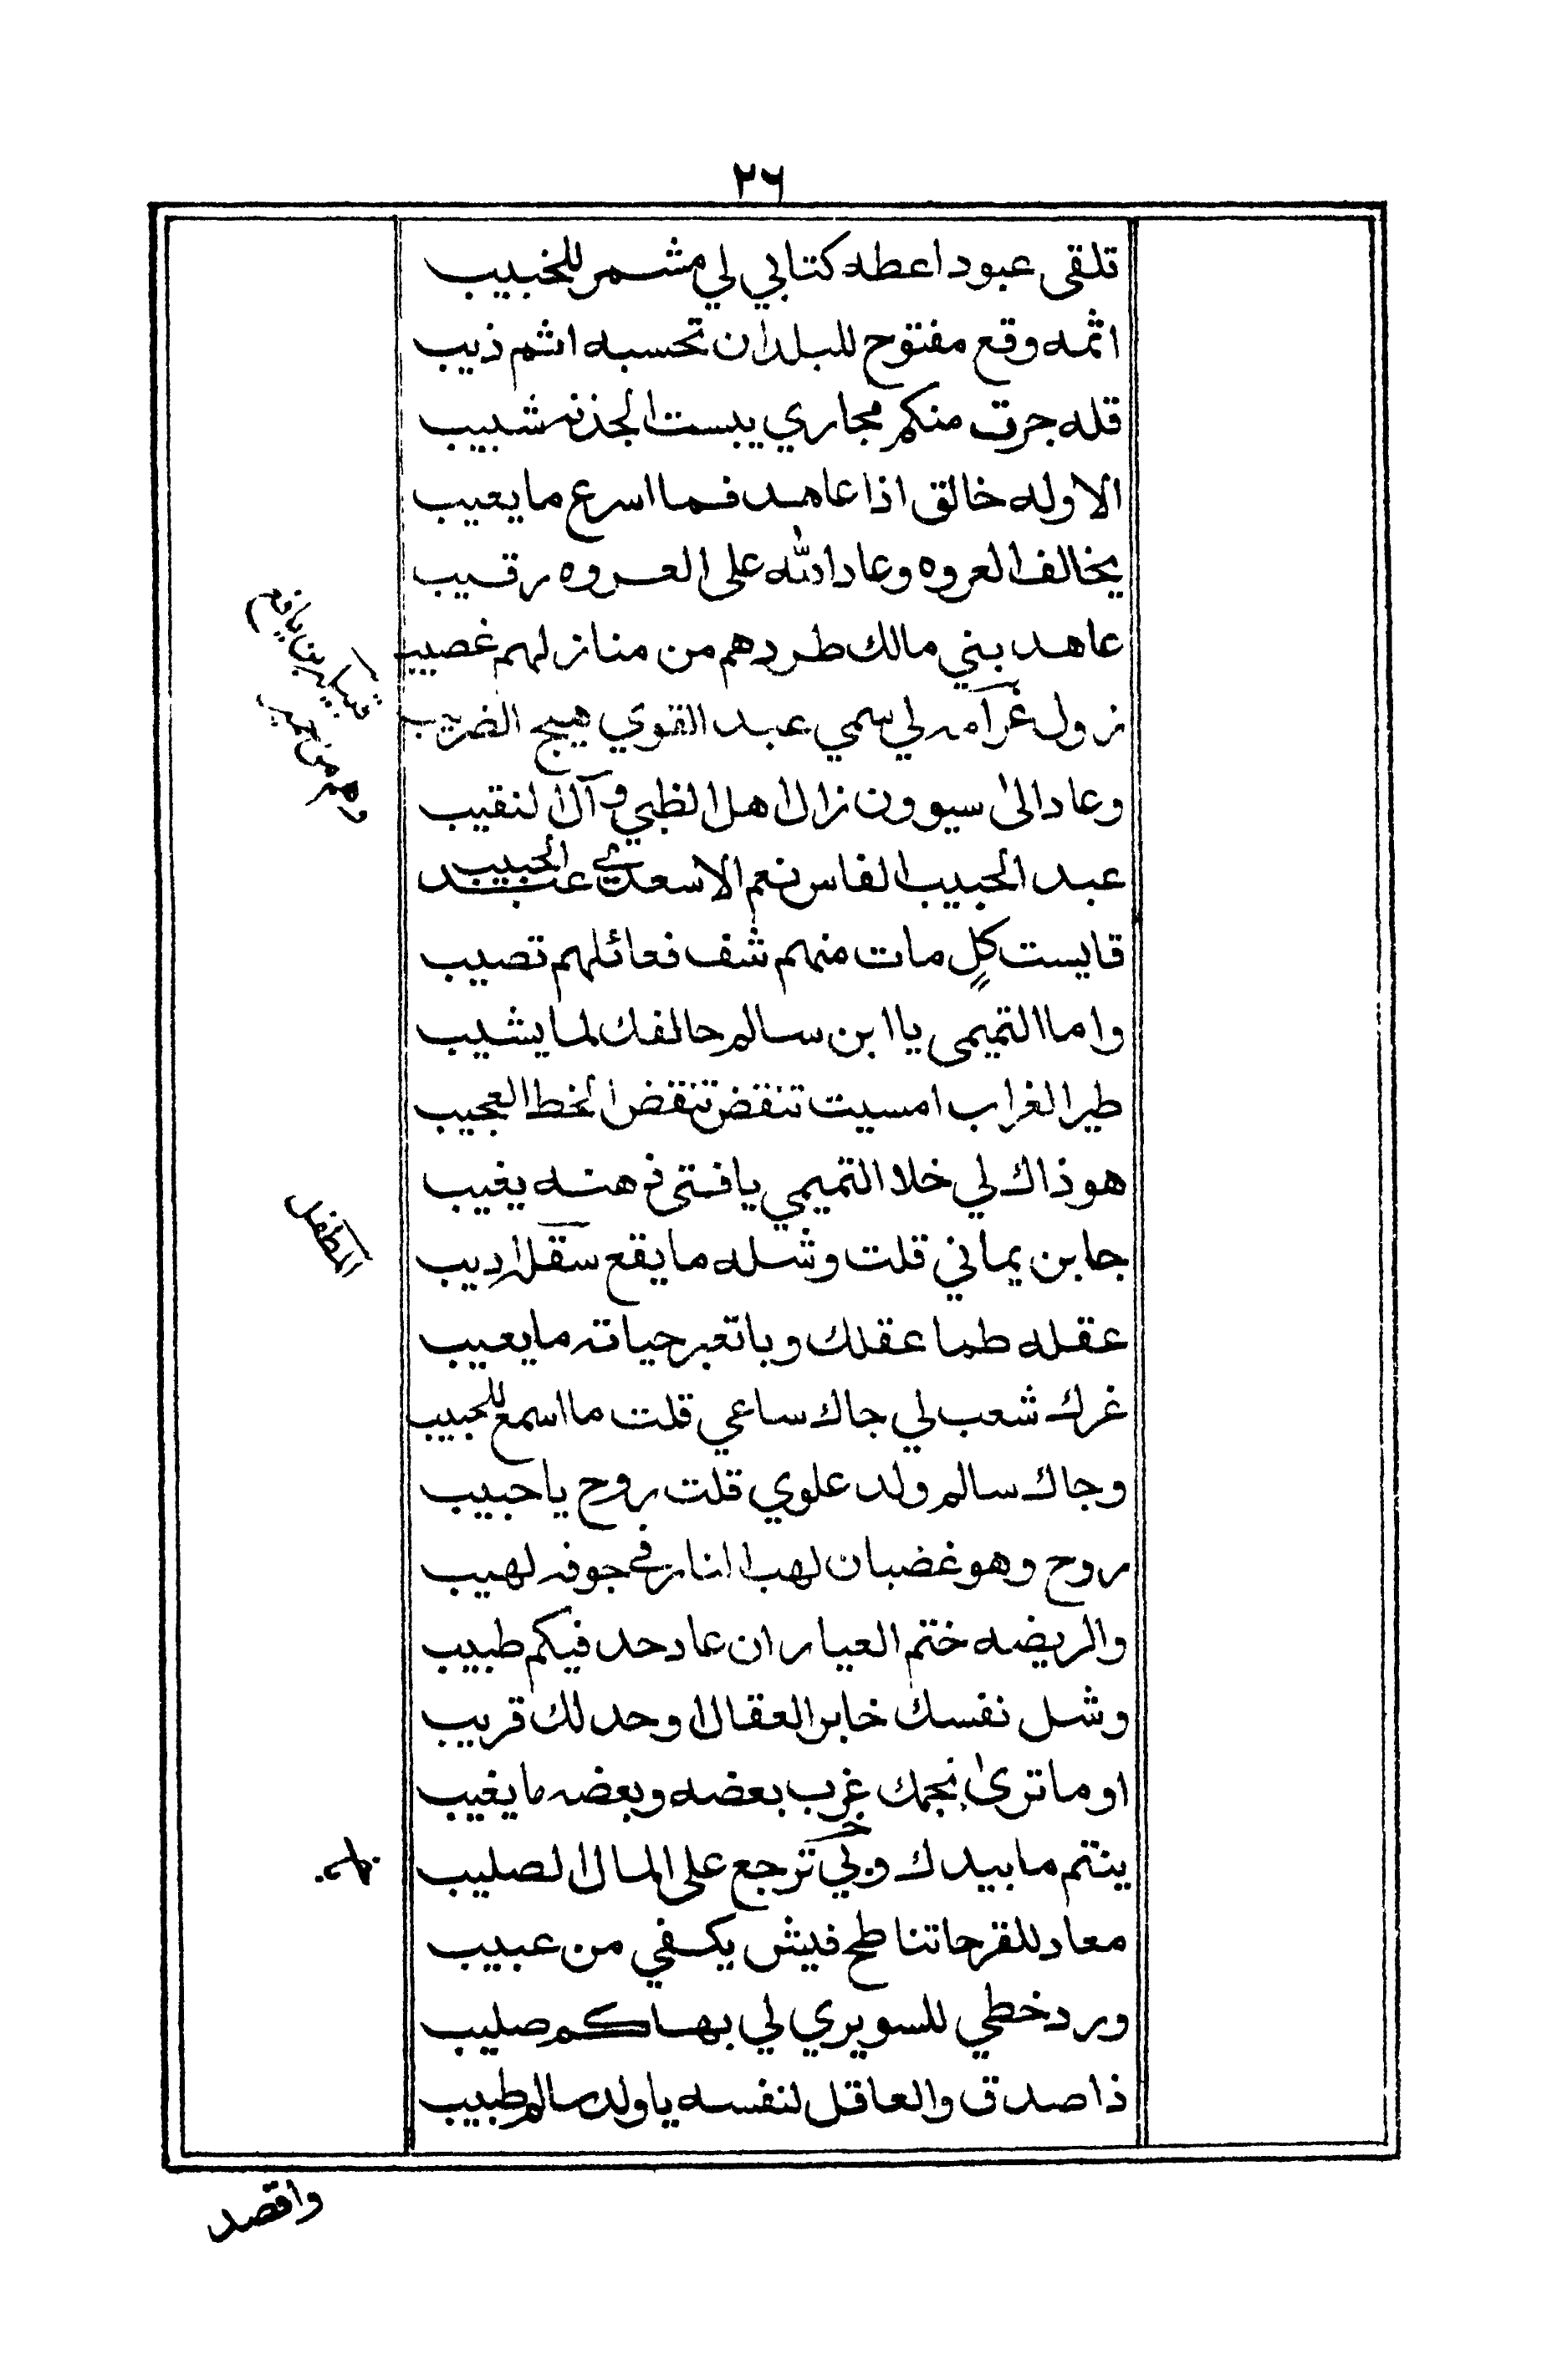 ٢٦
تلقى عبود اعطه كتابي لي مشمر للخبيب
اثمه وقع مفتوح للبلدان تحسبه اشم ذيب
قله جرت منكم مجاري يبست الجذنه شبيب
الاوله خالق اذا عاهد فما اسرع ما يعيب
يخالف العروه وعاد الله على العروه رقيب
عاهد بني مالك طردهم من منازلهم غصيب
نزول غرامه لي سمي عبد القوي هيج الضريب
وعاد الى سيوون نزال اهل الظبي وآل النقيب
عبد الحبيب الفاس نعم الاسعدي عبد الحبيب
قايست كلٍ مات منهم شف فعائلهم تصيب
واما التميمي يا ابن سالم حالفك لما يشيب
طير الغراب امسيت تنقض تنقض الخط العجيب
هو ذاك لي خلا التميمي يا فتى ذهنه يغيب
جا بن يماني قلت وشله ما يقع سقل اديب
عقله طما عقلك وبا تعبر حياته ما يعيب
غرك شعب لي جاك ساعي قلت ما اسمع للحبيب
وجاك سالم ولد علوي قلت روح يا حبيب
روح وهو غضبان لهب النار في جوفه لهيب
والريضه ختم العيار ان عاد حد فيكم طبيب
وشل نفسك خابر العقال اوحد لك قريب
او ما ترى نجمك غرب بعضه وبعضه ما يغيب
ينتم ما بيدك ولي ترجع على المال الصليب
معاد للقرحا تناطح فيش يكفي من عبيب
ورد خطي للسويري لي بها كم صليب
ذا صدق والعاقل لنفسه يا ولد سالم طبيب
المطفل
واقصد